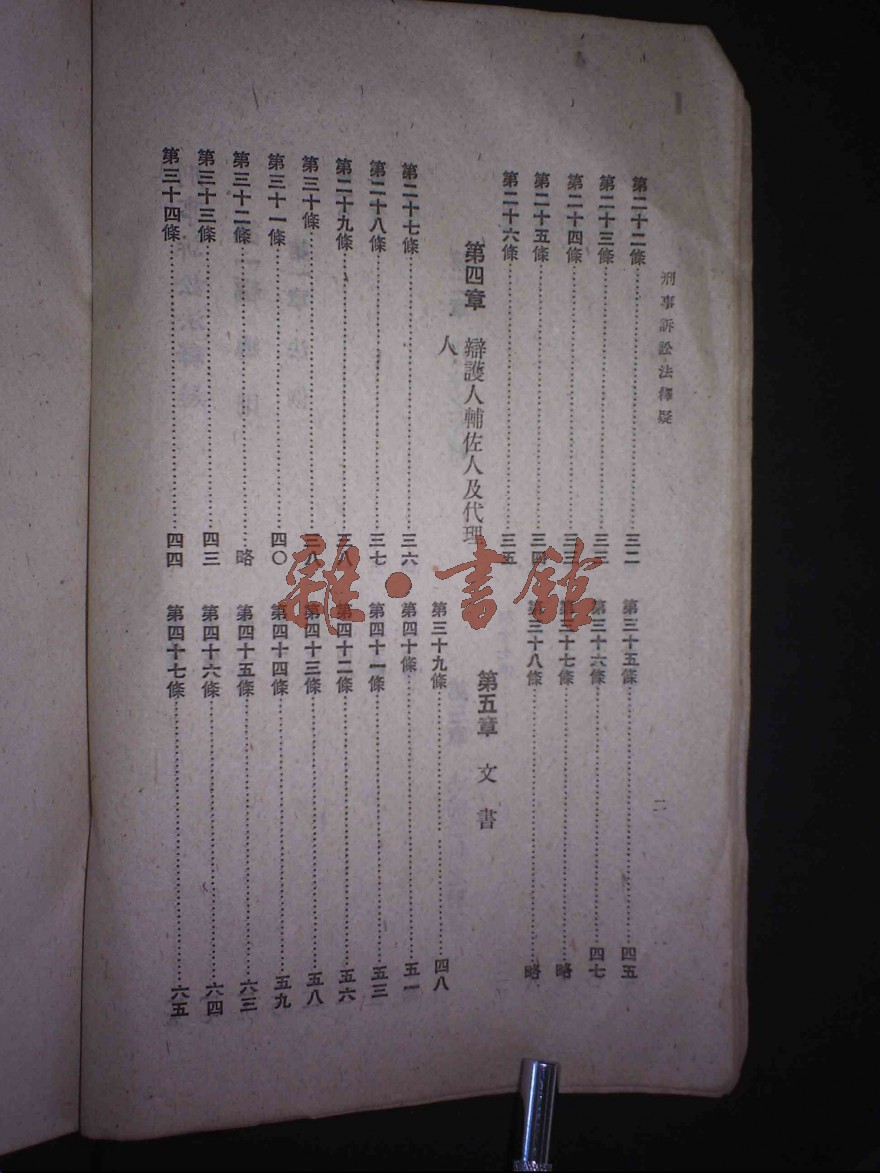 刑事訴訟法釋疑
二
第二十二條……三二
第二十三條……三三
第二十四條……三三
第二十五條……三四
第二十六條……三五
第四章 辯護人輔佐人及代理
人
第二十七條……三六
第二十八條……三七
第二十九條……三八
第三十條……三八
第三十一條……四〇
第三十二條……略
第三十三條……四三
第三十四條……四四
第三十五條……四五
第三十六條……四七
第三十七條……略
第三十八條……略
第五章 文書
第三十九條……四八
第四十條……五一
第四十一條……五三
第四十二條……五六
第四十三條……五八
第四十四條……五九
第四十五條……六三
第四十六條……六四
第四十七條……六五
雜·書館